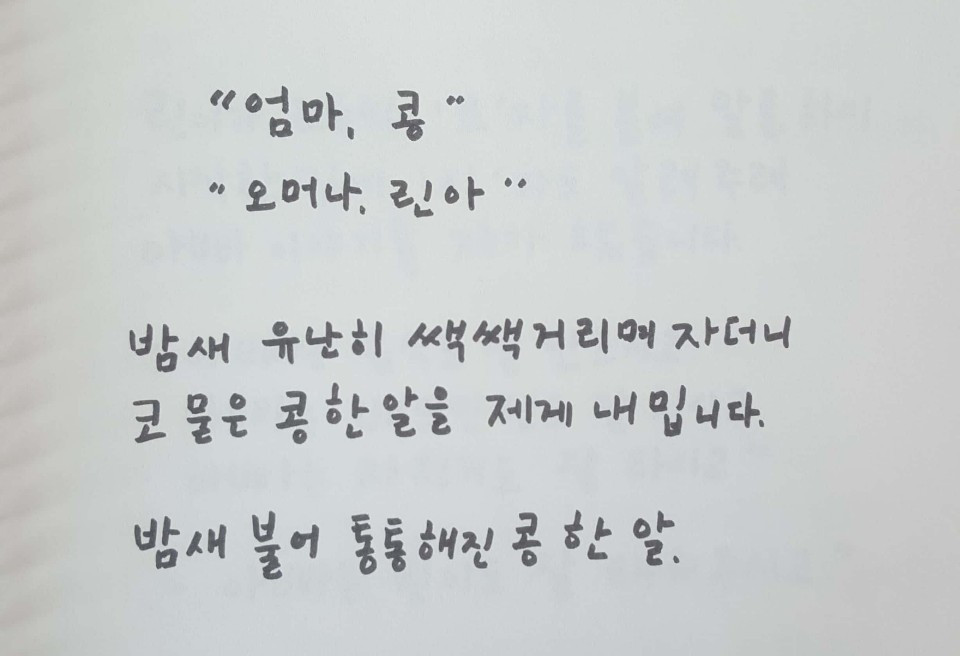 "엄마, 콩"
"오머나, 린아"
밤새 유난히 쌕쌕거리며 자더니
코 묻은 콩 한 알을 제게 내밉니다.
밤새 불어 통통해진 콩 한 알.